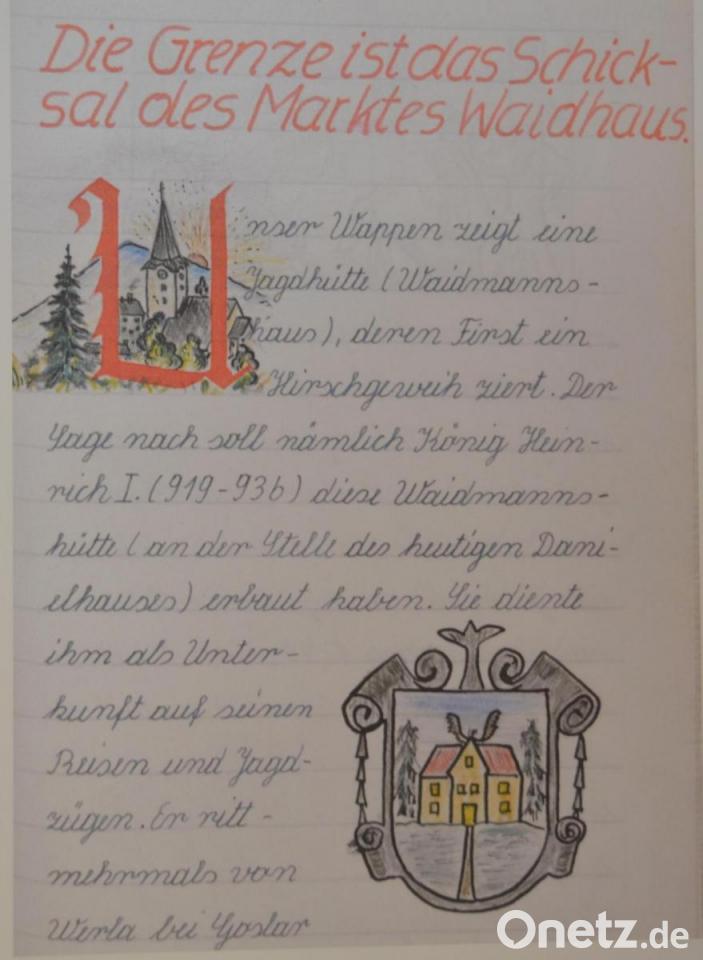 Die Grenze ist das Schick-
sal des Marktes Waidhaus.
Unser Wappen zeigt eine
Jagdhütte (Waidmanns-
haus), deren First ein
Hirschgeweih ziert. Der
Sage nach soll nämlich König Hein-
rich I. (919-936) diese Waidmanns-
hütte (an der Stelle des heutigen Dani-
elhauses) erbaut haben. Sie diente
ihm als Unter-
kunft auf seinen
Reisen und Jagd-
zügen. Er ritt -
mehrmals von
Werla bei Goslar
Onetz.de